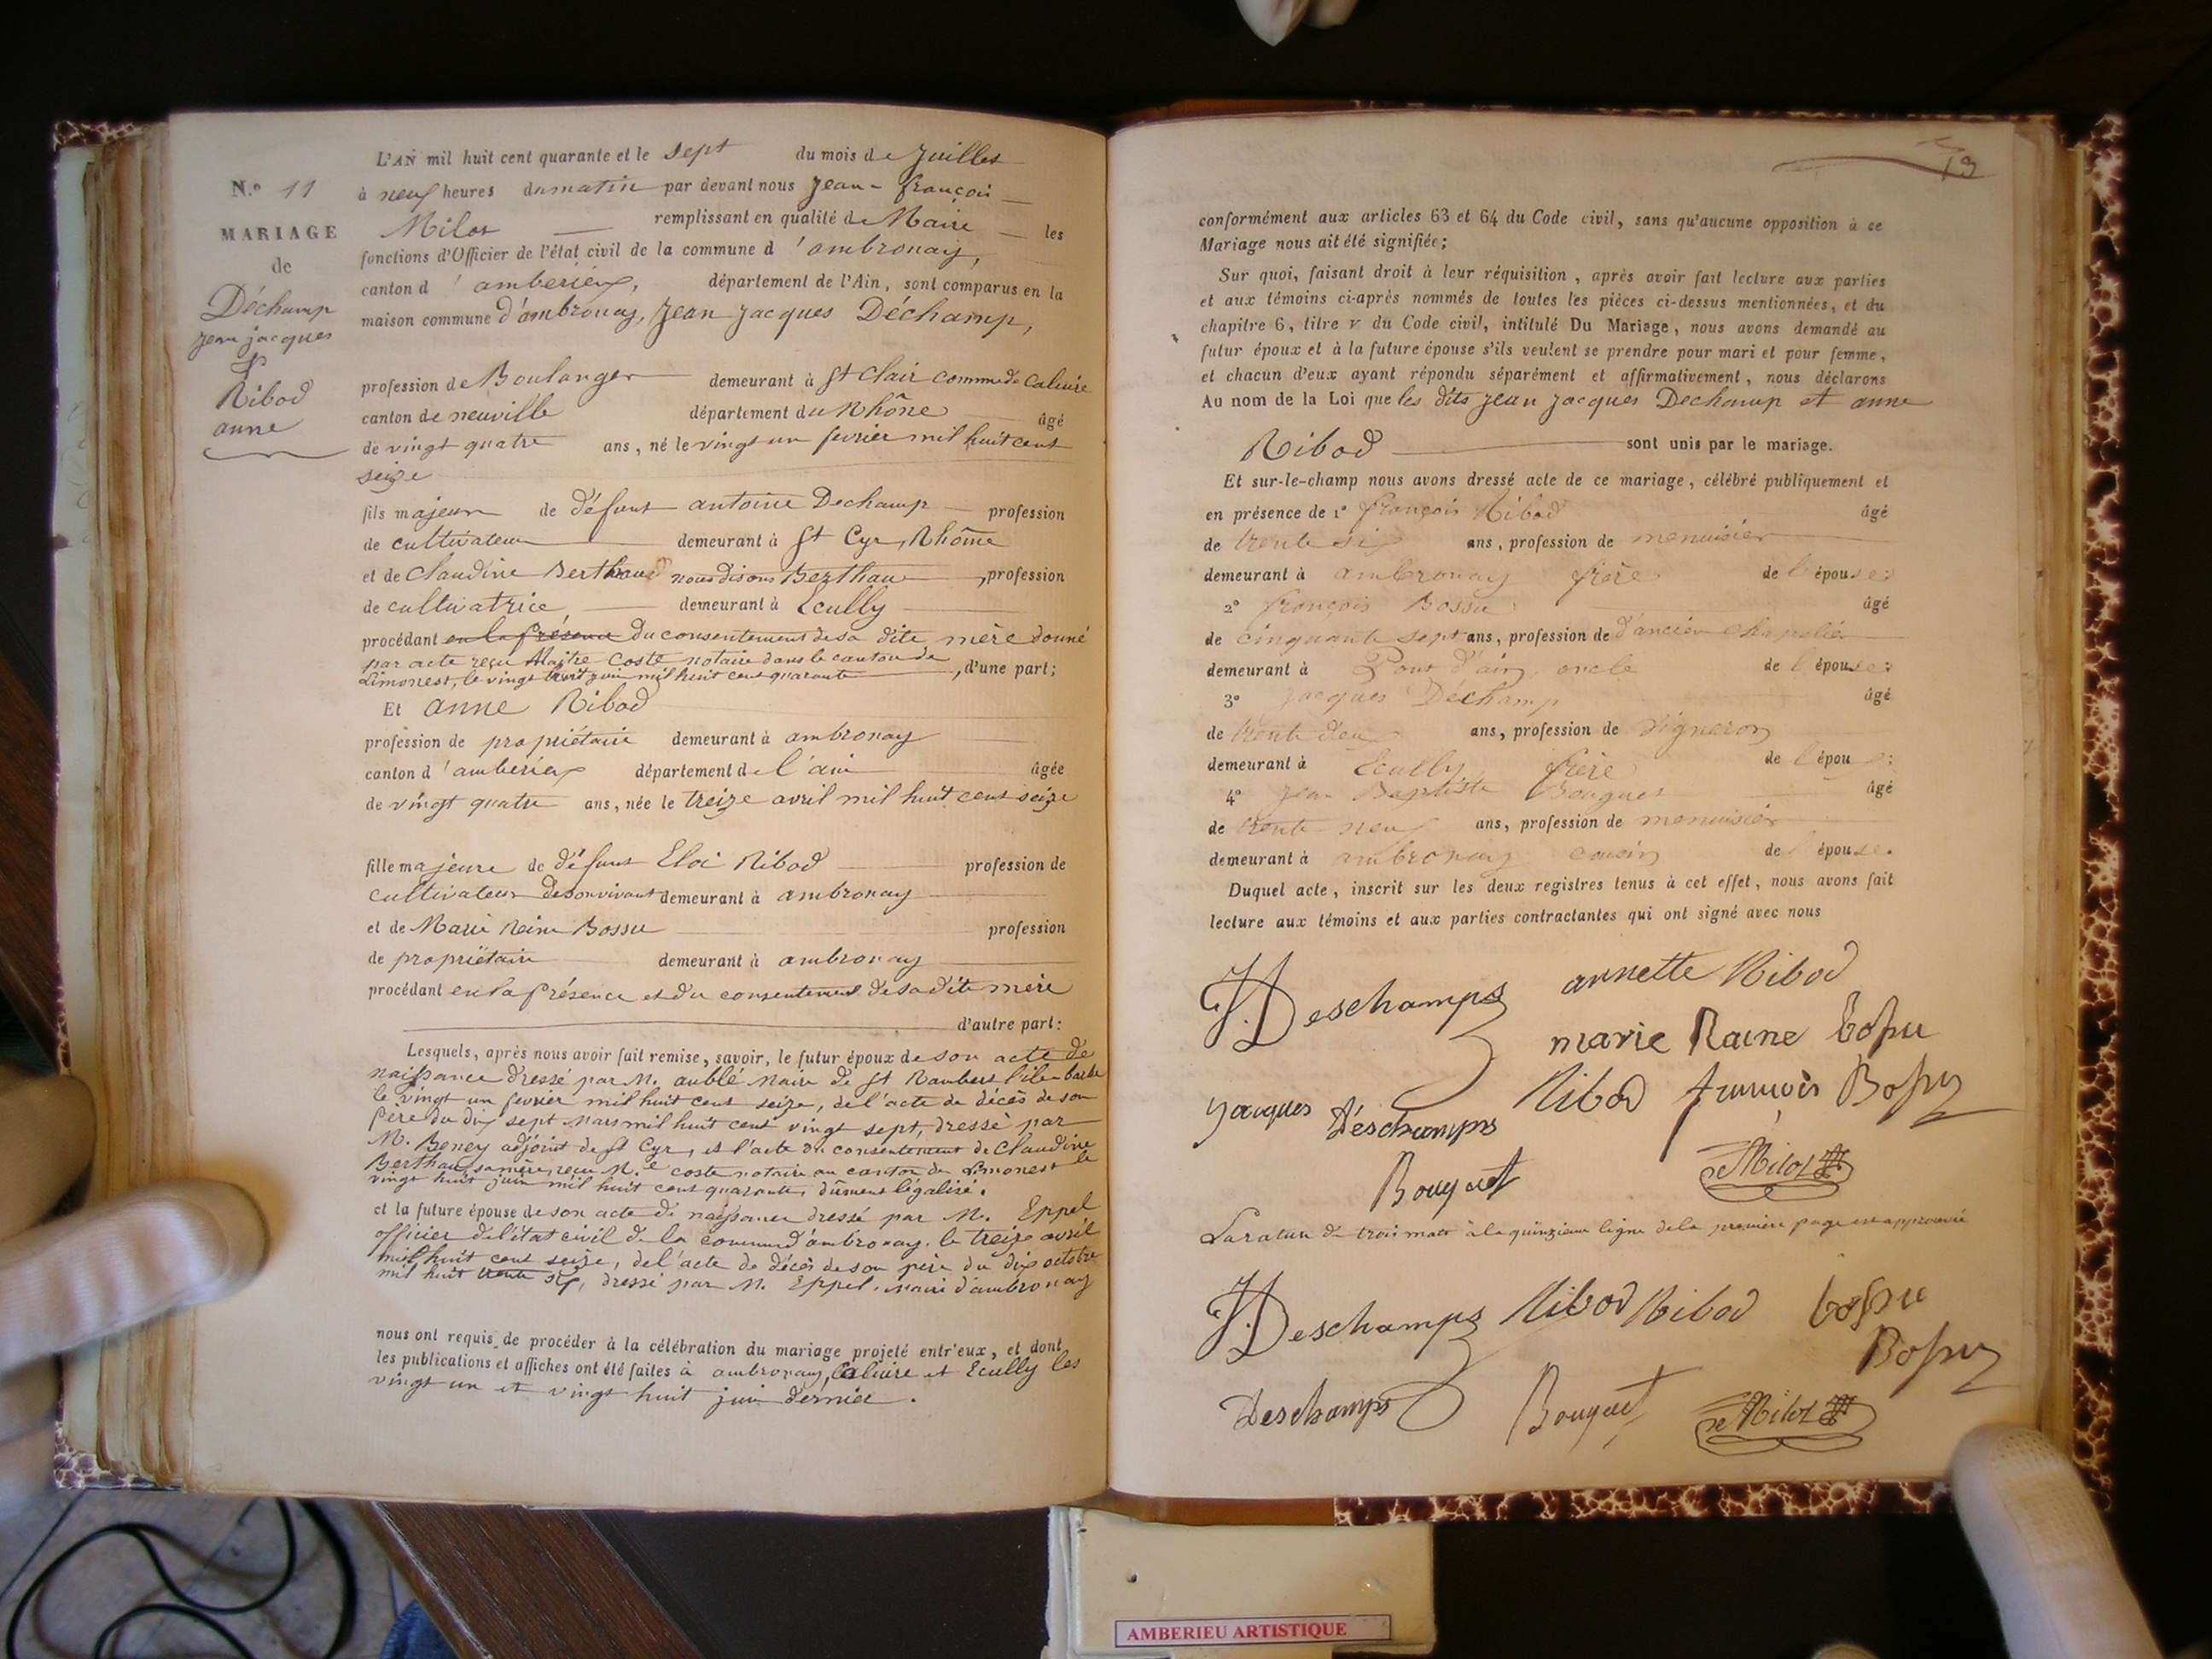 N.º 11
MARIAGE
de
Déchamp
jean jacques
&
Ribod
anne
L'AN mil huit cent quarante et le sept du mois de juillet
à neuf heures du matin par devant nous Jean-françois
Milot remplissant en qualité de Maire les
fonctions d'Officier de l'état civil de la commune d'ambronay,
canton d'amberieux, département de l'Ain, sont comparus en la
maison commune d'ambronay, Jean Jacques Déchamp,
profession de Boulanger demeurant à St Clair commune de Caluire
canton de neuville département du Rhône âgé
de vingt quatre ans, né le vingt un fevrier mil huit cent
seize
fils majeur de défunt antoine Dechamp profession
de cultivateur demeurant à St Cyr, Rhône
et de Claudine nous disons Berthau, profession
de cultivatrice demeurant à Ecully
procédant en la présence du consentement de sa dite mère donné
par acte reçu Maître Coste notaire dans le canton de
Limonest, le vingt huit juin mil huit cent quarante, d'une part;
Et anne Ribod
profession de propriétaire demeurant à ambronay
canton d'amberieux département de l'ain âgée
de vingt quatre ans, née le treize avril mil huit cent seize
fille majeure de défunt Eloi Ribod profession de
cultivateur de son vivant demeurant à ambronay
et de Marie Reine Bossu profession
de propriétaire demeurant à ambronay
procédant en la présence et du consentement de sa dite mère
d'autre part:
Lesquels, après nous avoir fait remise, savoir, le futur époux de son acte de
naissance dressé par M. aublé Maire de St Rambert l'ile barbe
le vingt un fevrier mil huit cent seize, de l'acte de décès de son
père du dix sept Mars mil huit cent vingt sept, dressé par
M. Beney adjoint de St Cyr, et l'acte de consentement de Claudine
Berthau sa mère, reçu M.e coste notaire au canton de Limonest le
vingt huit juin mil huit cent quarante, dûment légalisé.
et la future épouse de son acte de naissance dressé par M. Eppel
officier de l'état civil de la commune d'ambronay. le treize avril
mil huit cent seize, de l'acte de décès de son père du dix octobre
mil huit trente six, dressé par M. Eppel. maire d'ambronay
nous ont requis de procéder à la célébration du mariage projeté entr'eux, et dont
les publications et affiches ont été faites à ambronay, Caluire et Ecully les
vingt un et vingt huit juin dernier.
13
conformément aux articles 63 et 64 du Code civil, sans qu'aucune opposition à ce
Mariage nous ait été signifiée;
Sur quoi, faisant droit à leur réquisition, après avoir fait lecture aux parties
et aux témoins ci-après nommés de toutes les pièces ci-dessus mentionnées, et du
chapitre 6, titre v du Code civil, intitulé Du Mariage, nous avons demandé au
futur époux et à la future épouse s'ils veulent se prendre pour mari et pour femme,
et chacun d'eux ayant répondu séparément et affirmativement, nous déclarons
Au nom de la Loi que les dits Jean Jacques Dechamp et anne
Ribod sont unis par le mariage.
Et sur-le-champ nous avons dressé acte de ce mariage, célébré publiquement et
en présence de 1º françois Ribod âgé
de trente six ans, profession de menuisier
demeurant à ambronay frère de l'épouse:
2º françois Bossu âgé
de cinquante sept ans, profession de d'ancien chapelier
demeurant à Pont d'ain oncle de l'épouse:
3º Jacques Déchamp âgé
de trente deux ans, profession de vigneron
demeurant à Ecully frère de l'épou :
4º Jean Baptiste Bouquet âgé
de trente neuf ans, profession de menuisier
demeurant à ambronay cousin de l'épouse.
Duquel acte, inscrit sur les deux registres tenus à cet effet, nous avons fait
lecture aux témoins et aux parties contractantes qui ont signé avec nous
J. Deschamps annette Ribod
marie Raine bossu
Jacques Déschamps Ribod francois Bossu
Bouquet Milot
La rature de trois mots à la quinzieme ligne de la première page est approuvée
J. Deschamps Ribod Ribod bossu
Bossu
Deschamps Bouquet Milot
AMBERIEU ARTISTIQUE